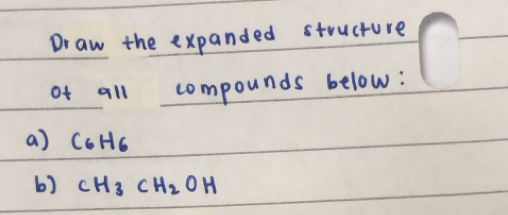 Draw the expanded structure
of all compounds below:
a) C6H6
b) CH3 CH2 OH